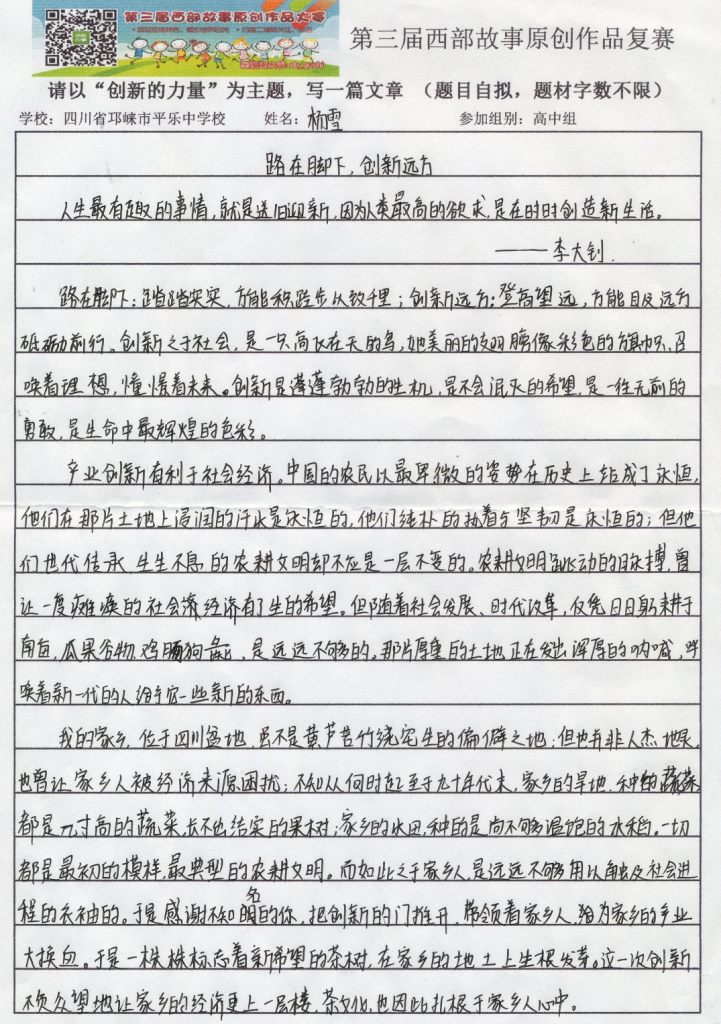 第三届西部故事原创作品大赛
第三届西部故事原创作品复赛
请以“创新的力量”为主题，写一篇文章 （题目自拟，题材字数不限）
学校：四川省邛崃市平乐中学校 姓名：杨雪 参加组别：高中组
路在脚下，创新远方
人生最有趣的事情，就是送旧迎新，因为人类最高的欲求，是在时时创造新生活。
——李大钊
路在脚下：踏踏实实，方能积跬步以致千里；创新远方：登高望远，方能目及远方
砥砺前行。创新之于社会，是一只高飞在天的鸟，她美丽的翅膀像彩色的旗帜，召
唤着理想，憧憬着未来。创新是蓬蓬勃勃的生机，是不会泯灭的希望，是一往无前的
勇敢，是生命中最辉煌的色彩。
产业创新有利于社会经济。中国的农民以最卑微的姿势在历史上结成了永恒，
他们在那片土地上浸润的汗水是永恒的，他们纯朴的执着与坚韧是永恒的；但他
们世代传承、生生不息的农耕文明却不应是一层不变的。农耕文明跳动的脉搏，曾
让一度瘫痪的社会经济有了生的希望。但随着社会发展、时代改革，仅凭日日躬耕于
南亩，瓜果谷物，鸡脯狗彘，是远远不够的。那片厚重的土地正在发出浑厚的呐喊，呼
唤着新一代的人给予它一些新的东西。
我的家乡，位于四川盆地，虽不是黄芦苦竹绕宅生的偏僻之地；但也并非人杰地灵，
也曾让家乡人被经济来源困扰；不知从何时起至于九十年代末，家乡的旱地，种的蔬菜
都是几寸高的蔬菜，长不出结实的果树；家乡的水田，种的是尚不够温饱的水稻。一切
都是最初的模样，最典型的农耕文明。而如此之于家乡人，是远远不够用以触及社会进
程的衣袖的。于是感谢不知名的你，把创新的门推开，带领着家乡人，给为家乡的产业
大换血。于是一株株标志着新希望的茶树，在家乡的地土上生根发芽。这一次创新
不负众望地让家乡的经济更上一层楼，茶文化，也因此扎根于家乡人心中。